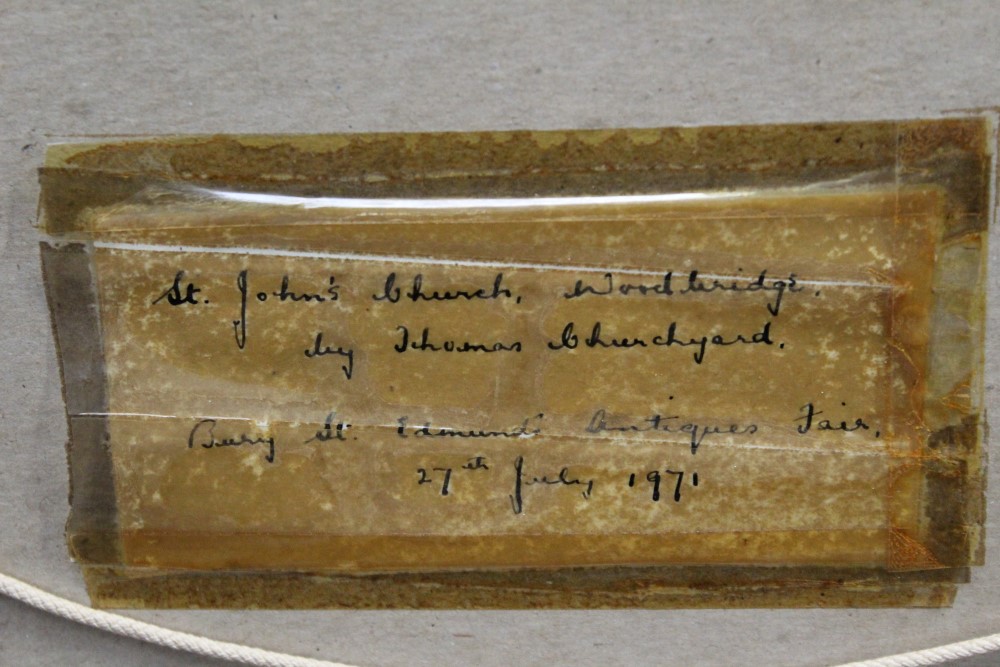 St. John's Church, Woodbridge,
by Thomas Churchyard.
Bury St. Edmunds Antiques Fair,
27th July 1971